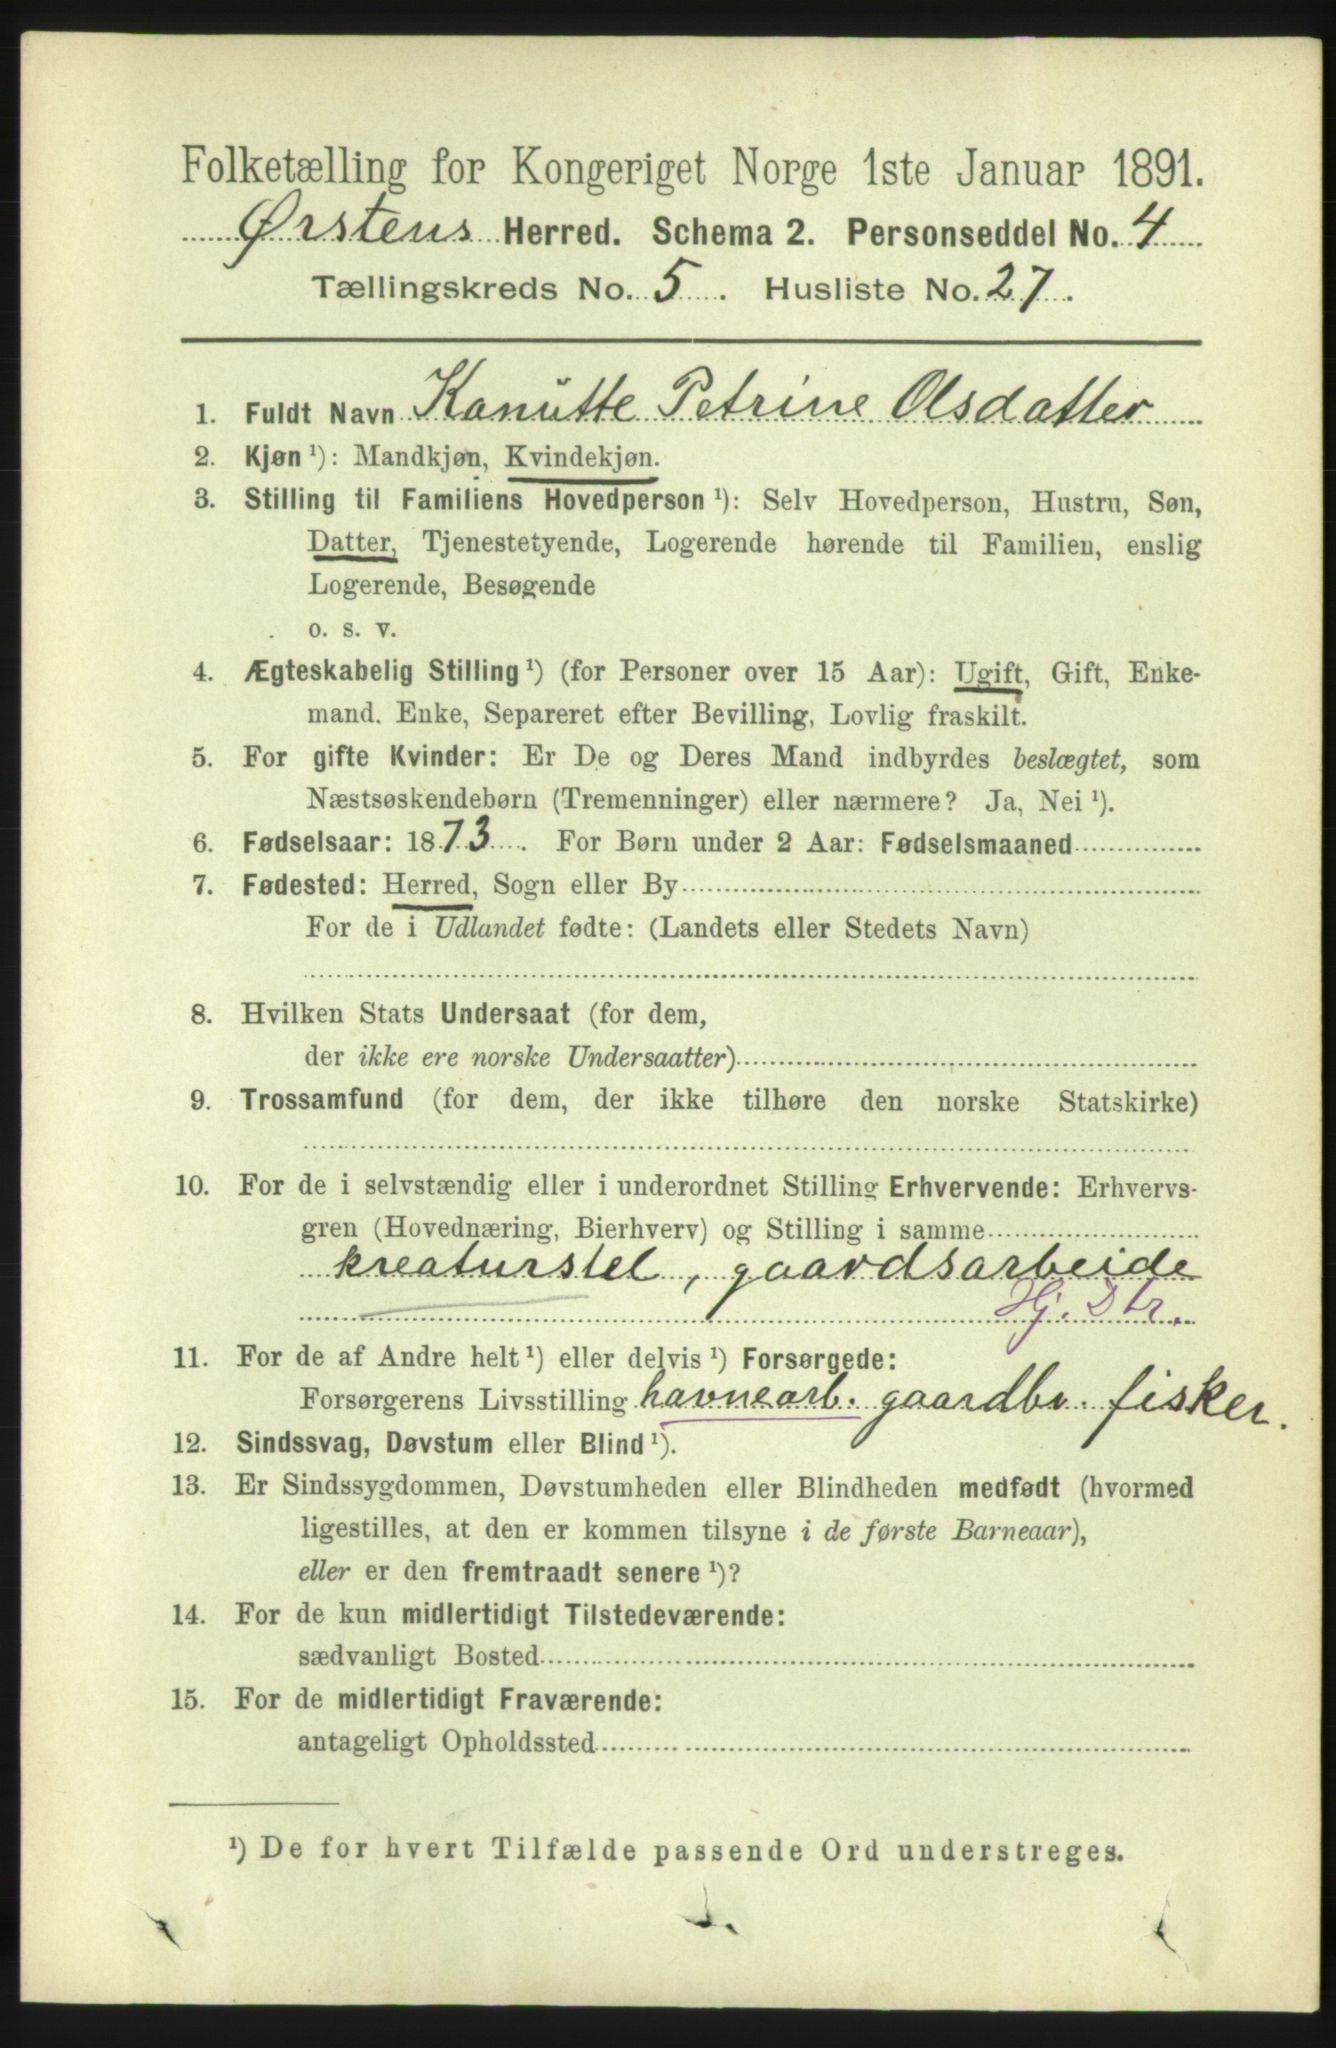 Folketælling for Kongeriget Norge 1ste Januar 1891.
Ørstens Herred. Schema 2. Personseddel No. 4
Tællingskreds No. 5. Husliste No. 27.
1. Fuldt Navn Kanutte Petrine Olsdatter
2. Kjøn ¹): Mandkjøn, Kvindekjøn.
3. Stilling til Familiens Hovedperson ¹): Selv Hovedperson, Hustru, Søn,
Datter, Tjenestetyende, Logerende hørende til Familien, enslig
Logerende, Besøgende
o. s. v.
4. Ægteskabelig Stilling ¹) (for Personer over 15 Aar): Ugift, Gift, Enke-
mand, Enke, Separeret efter Bevilling, Lovlig fraskilt.
5. For gifte Kvinder: Er De og Deres Mand indbyrdes beslægtet, som
Næstsøskendebørn (Tremenninger) eller nærmere? Ja, Nei ¹).
6. Fødselsaar: 1873. For Børn under 2 Aar: Fødselsmaaned
7. Fødested: Herred, Sogn eller By
For de i Udlandet fødte: (Landets eller Stedets Navn)
8. Hvilken Stats Undersaat (for dem,
der ikke ere norske Undersaatter)
9. Trossamfund (for dem, der ikke tilhøre den norske Statskirke)
10. For de i selvstændig eller i underordnet Stilling Erhvervende: Erhvervs-
gren (Hovednæring, Bierhverv) og Stilling i samme
kreaturstel, gaardsarbeide
Hj. Dtr.
11. For de af Andre helt ¹) eller delvis ¹) Forsørgede:
Forsørgerens Livsstilling havnearb. gaardbr. fisker.
12. Sindssvag, Døvstum eller Blind ¹).
13. Er Sindssygdommen, Døvstumheden eller Blindheden medfødt (hvormed
ligestilles, at den er kommen tilsyne i de første Barneaar),
eller er den fremtraadt senere ¹)?
14. For de kun midlertidigt Tilstedeværende:
sædvanligt Bosted
15. For de midlertidigt Fraværende:
antageligt Opholdssted
¹) De for hvert Tilfælde passende Ord understreges.